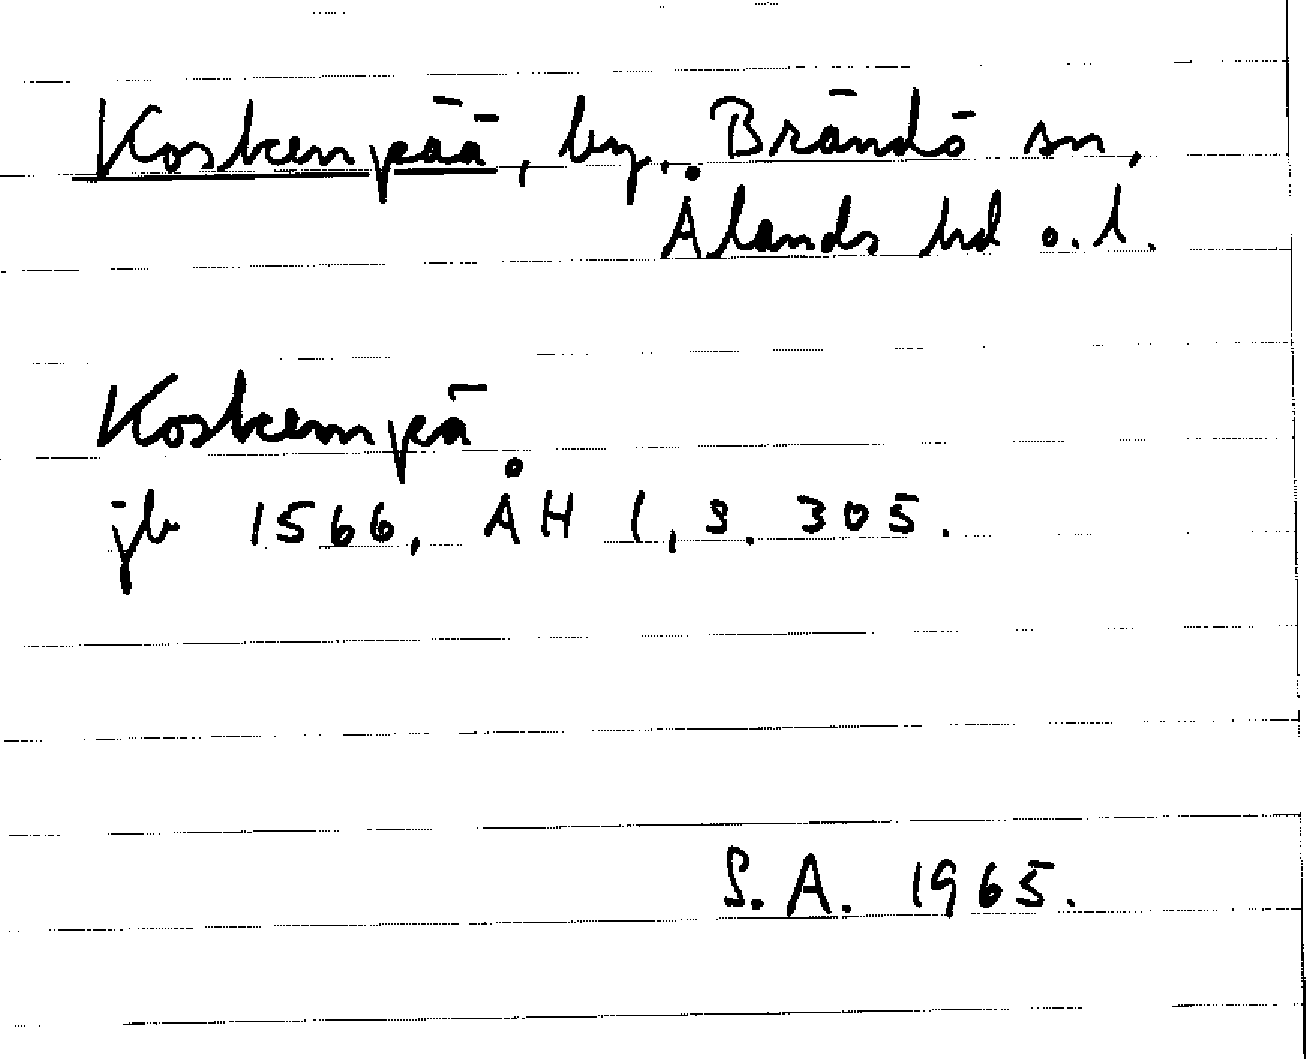 Koskenpää, by, Brändö sn,
Ålands hd o. l.
Koskempä
jb 1566, ÅH 1, s. 305.
S. A. 1965.